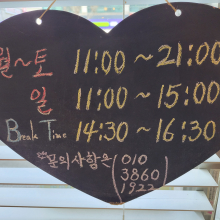 월~토 11:00~21:00
일 11:00~15:00
Break Time 14:30~16:30
문의사항은 010
3860
1922